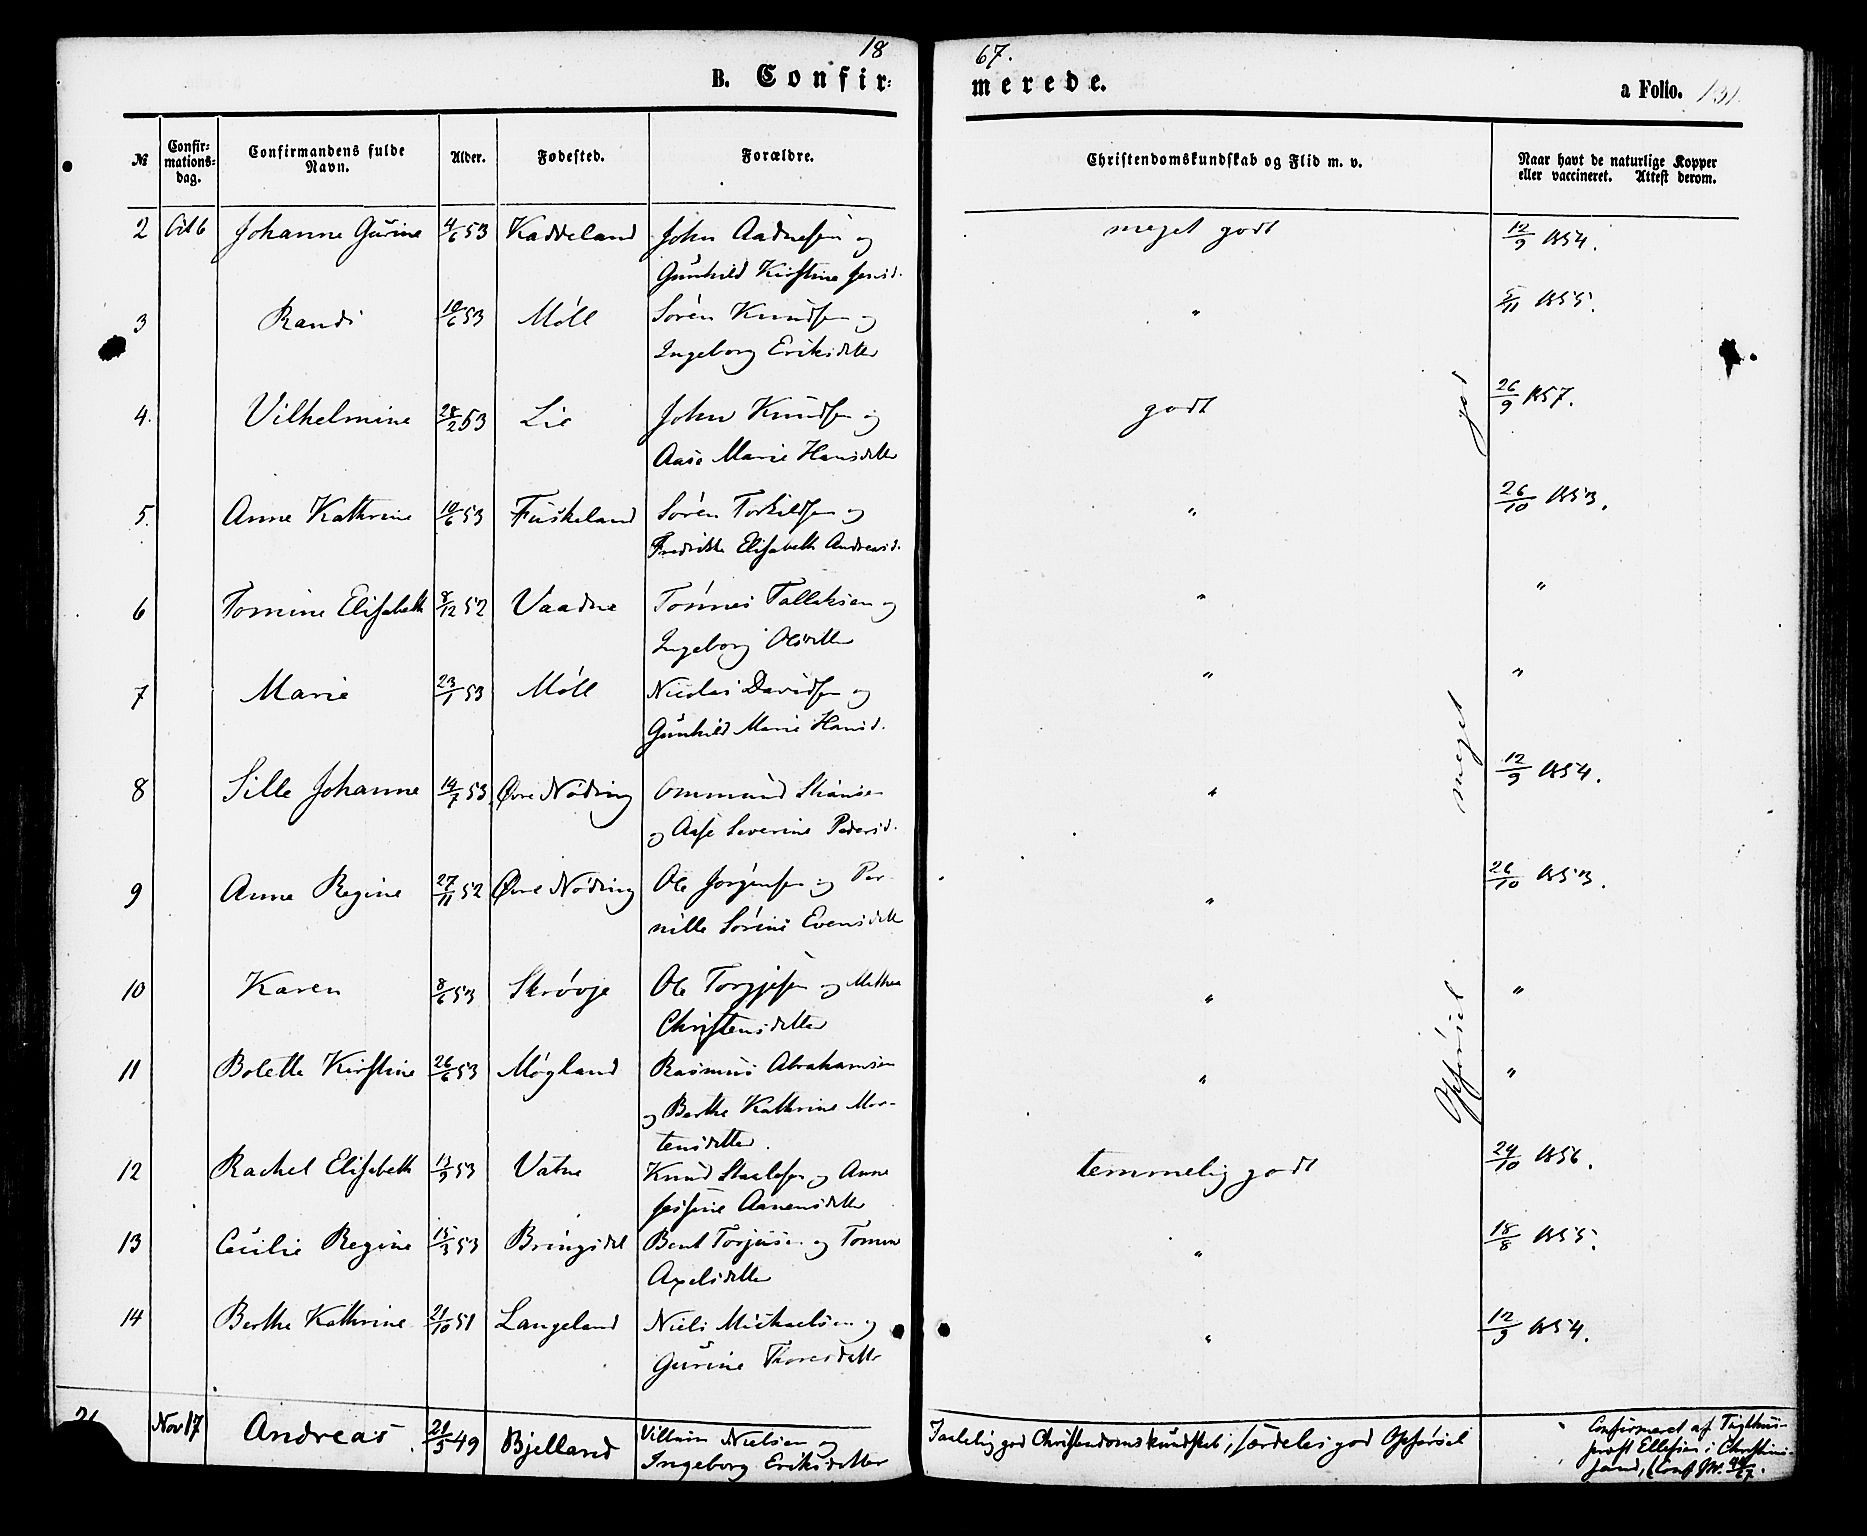 18
67.
B. Confir=
merede.
a Folio. 131.
№
Confir=
mations=
dag.
Confirmandens fulde
Navn.
Alder.
Fødested.
Forældre.
Christendomskundskab og Flid m. v.
Naar havt de naturlige Kopper
eller vaccineret. Attest derom.
2 Johanne Gurine 4/6 53 Kaddeland John Aadnesen og meget godt 12/9 1854.
Gunhild Kirstine
3 Randi 10/6 53 Møll Søren Knudsen og " 5/11 1855.
Ingeborg Eriksdatter
4. Vilhelmine 28/2 53 Lie John Knudsen og godt 26/9 1857.
Aase Marie Hansdatter
5. Anne Kathrine 10/6 53 Fuskeland Søren Torkildsen og " 26/10 1853.
Fredrikke Elisabeth Andreasd.
6 Tomine Elisabeth 8/12 52 Vaadne Tønnes Tallaksen og " "
Ingeborg Olsdatter
7 Marie 23/1 53 Møll Nicolai Davidsen og " "
Gunhild Marie Hansd.
8 Sille Johanne 14/7 53 Øvre Nødring Ommund " 12/9 1854.
og Aase Severine Pedersd.
9 Anne Regine 27/11 52 Øvre Nødring Ole Jørgensen og Per- " 26/10 1853.
nille Sørine Evensdatt
10 Karen 8/6 53 Skrøvje Ole Torgjesen og Mathea " "
Christensdatter
11 Bolette Kirstine 26/6 53 Møgland Rasmus Abrahamsen " "
og Berthe Kathrine Mor-
tensdatter.
12 Rachel Elisabeth 13/9 53 Vatne Knud Staalesen og Anne temmelig godt 24/10 1856.
Josefine Aanensdatter
13 Cecilie Regine 15/3 53 Bringsdal Bent Torjusen og Tomine " 18/8 1855.
Axelsdatter
14 Berthe Kathrine 21/10 51 Langeland Niels Michaelsen og " 12/9 1854.
Gurine Thoresdatter
meget god
Opførsel.
Nov 17 Andreas 21/5 49 Bjelland Villum Nielsen og
Ingeborg Eriksdatter
god Christendomskundskab, særdeles god Opførsel
Confirmeret af Tugthus-
præst Ellefsen i Christian-
sand,